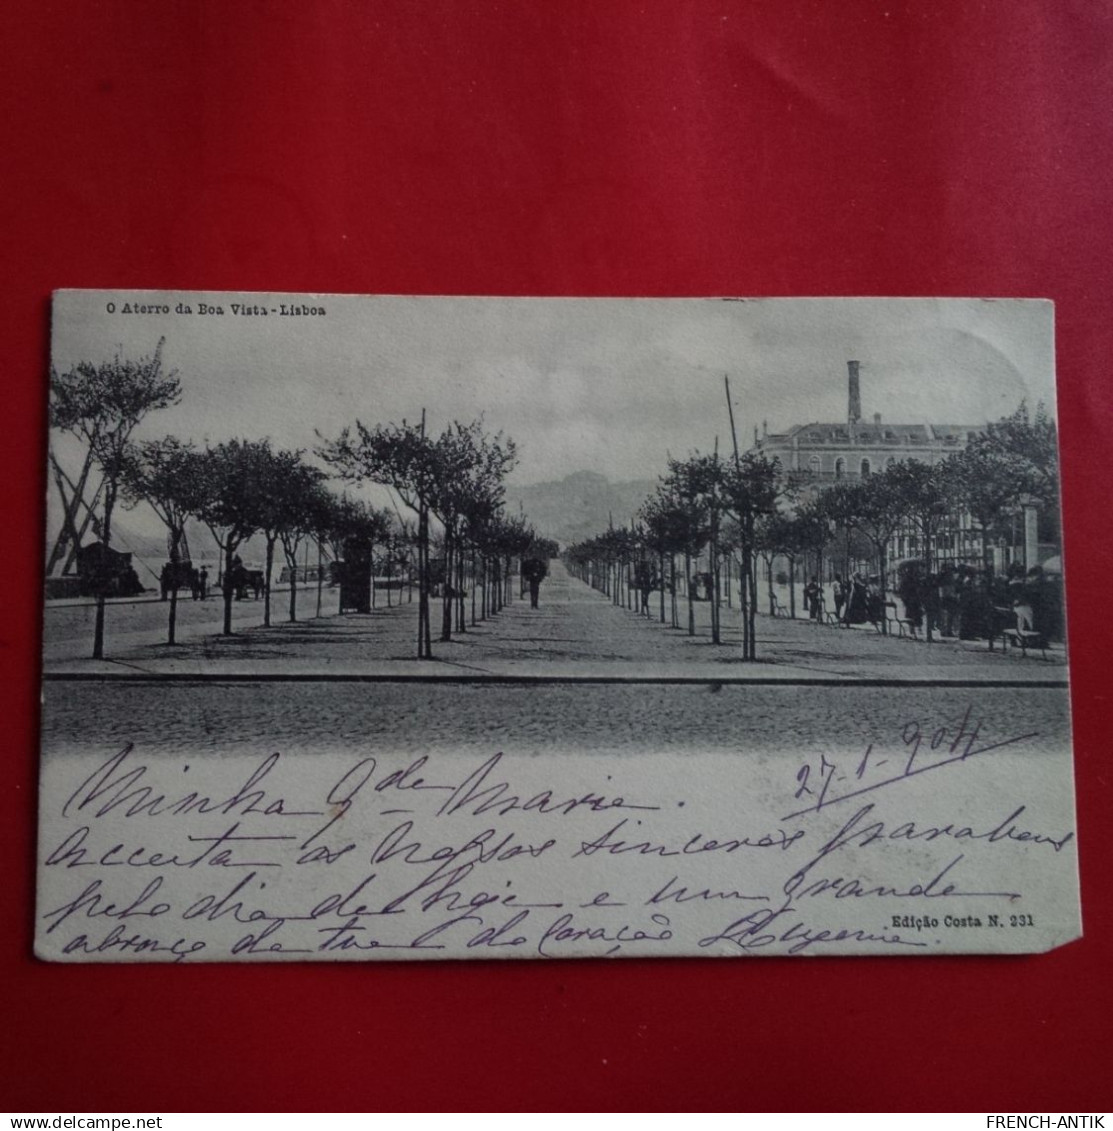 O Aterro da Boa Vista - Lisboa
27-1-904
Minha q.de Marie.
Acceita os nossos sinceros parabens
pelo dia de hoje e um grande
abraço da tua do Coração Eugenia.
Edição Costa N. 231
FRENCH-ANTIK